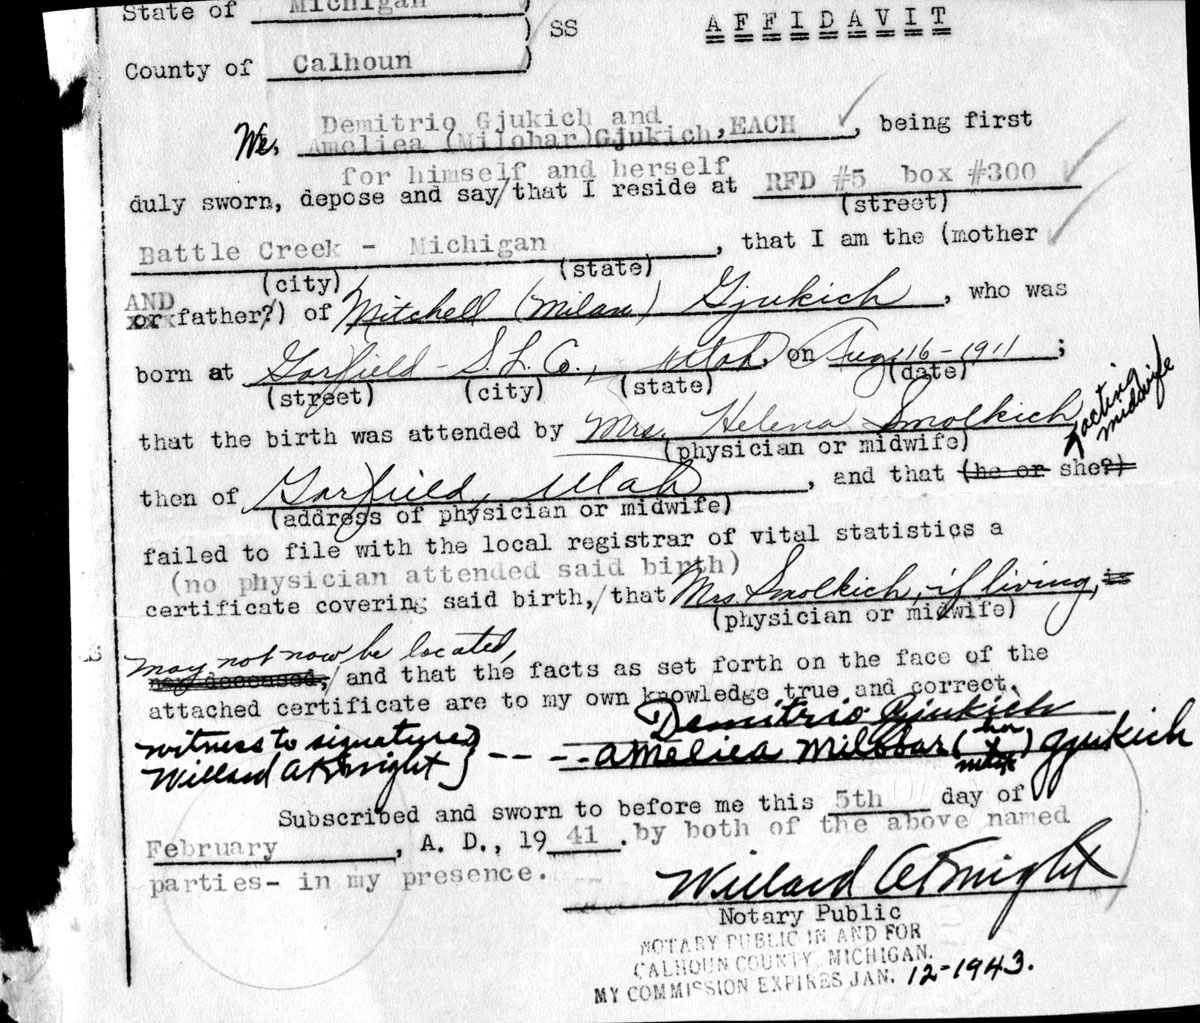 State of Michigan )
) SS AFFIDAVIT
County of Calhoun )
Demitrio Gjukich and
We, Ameliea (Milobar) Gjukich, EACH, being first
for himself and herself
duly sworn, depose and say/that I reside at RFD #5 box #300
(street)
Battle Creek - Michigan, that I am the (mother
(city) (state)
AND
or father?) of Mitchell (Milan) Gjukich, who was
born at Garfield - S. L. Co., Utah, on Aug. 16-1911;
(street) (city) (state) (date)
that the birth was attended by Mrs. Helena Smolkich, acting midwife
(physician or midwife)
then of Garfield, Utah, and that (he or she?)
(address of physician or midwife)
failed to file with the local registrar of vital statistics a
(no physician attended said birth)
certificate covering said birth,/that Mrs. Smolkich, if living, is
(physician or midwife)
may not now be located,
now deceased,/and that the facts as set forth on the face of the
attached certificate are to my own knowledge true and correct.
Demitrio Gjukich
Witness to signatures } --- Ameliea Milobar (her mark) Gjukich
Willard A Knight
Subscribed and sworn to before me this 5th day of
February, A. D., 19 41. by both of the above named
parties- in my presence.
Willard A Knight
Notary Public
NOTARY PUBLIC IN AND FOR
CALHOUN COUNTY, MICHIGAN.
MY COMMISSION EXPIRES JAN. 12-1943.